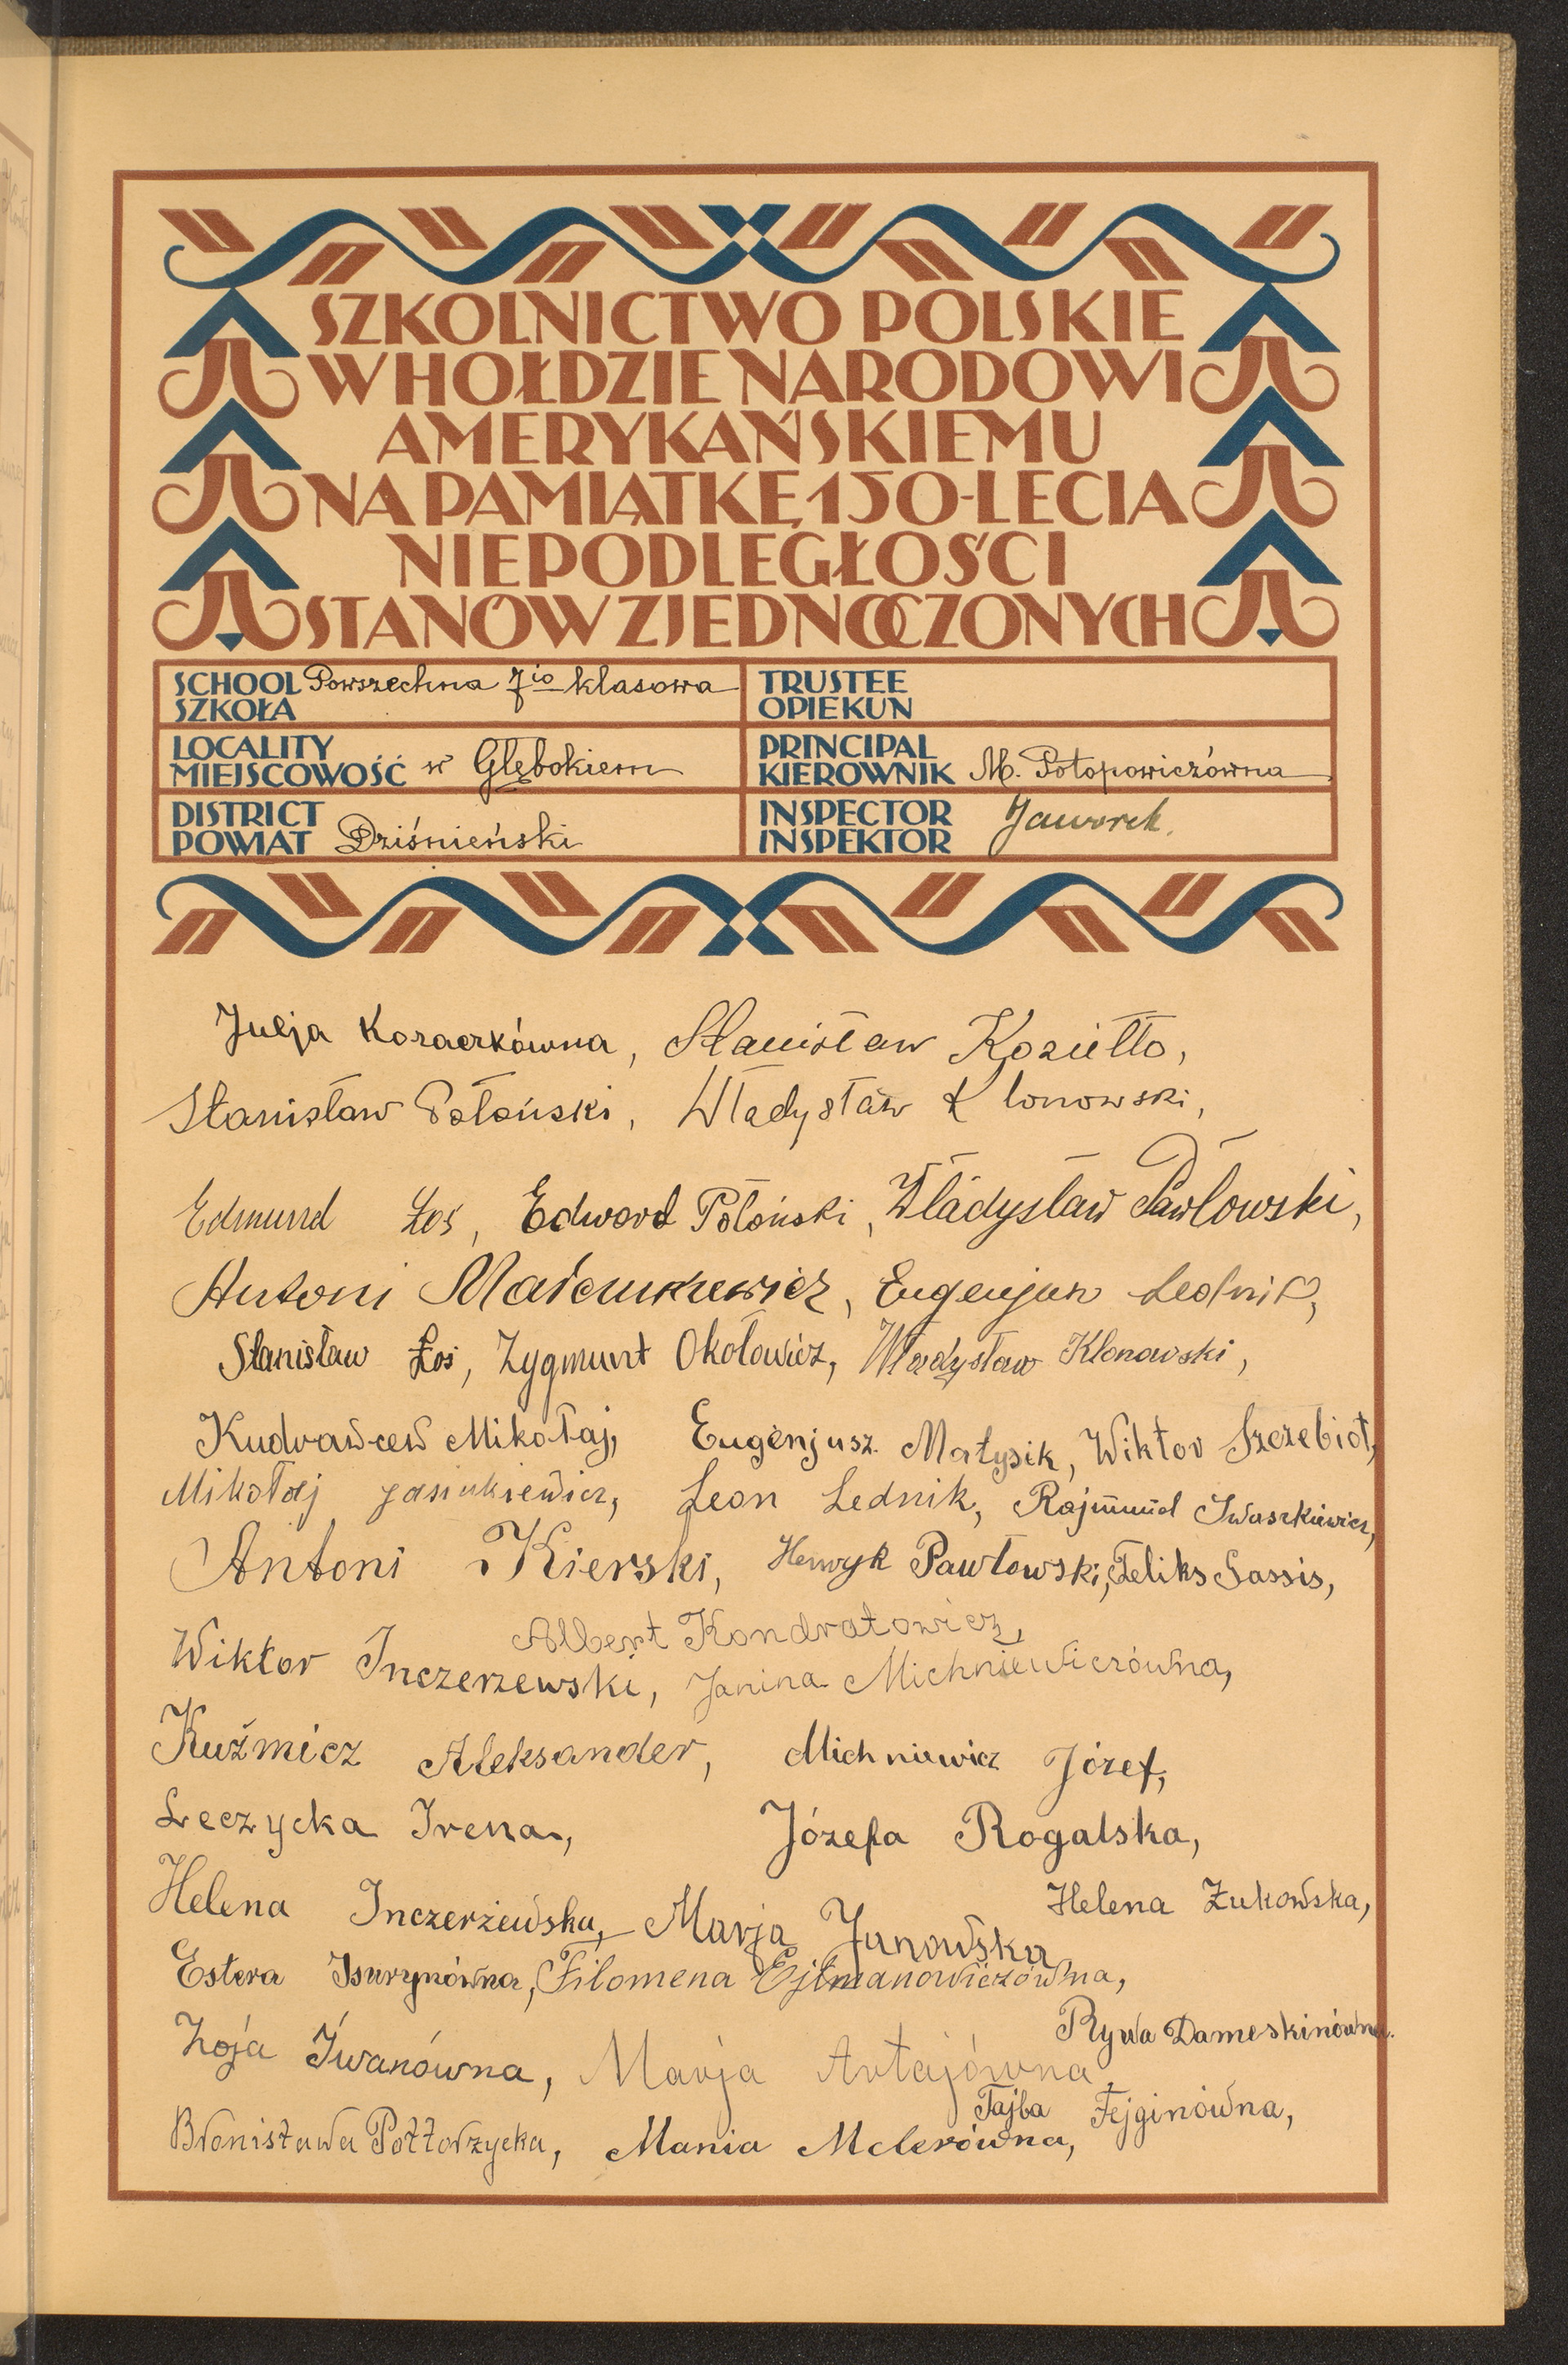 SZKOLNICTWO POLSKIE
W HOŁDZIE NARODOWI
AMERYKAŃSKIEMU
NA PAMIĄTKĘ 150-LECIA
NIEPODLEGŁOŚCI
STANÓW ZJEDNOCZONYCH
SCHOOL
SZKOŁA Powszechna 7io klasowa
TRUSTEE
OPIEKUN
LOCALITY
MIEJSCOWOŚĆ w Głębokiem
PRINCIPAL
KIEROWNIK M. Potopowiczówna
DISTRICT
POWIAT Dziśnieński
INSPECTOR
INSPEKTOR Jaworek
Julja Kozaczkówna, Stanisław Koziełło,
Stanisław Połoński, Władysław Klonowski,
Edmund Łoś, Edward Połoński, Władysław Pawłowski,
Antoni Eugenjusz Lednik,
Stanisław Łoś, Zygmunt Okołowicz, Władysław Klonowski,
Kudrawcew Mikołaj, Eugenjusz Matysik, Wiktor Szczebiot,
Mikołaj Jasiukiewicz, Leon Lednik, Rajmund Iwaszkiewicz,
Antoni Kierski, Henryk Pawłowski, Feliks Sassis,
Albert Kondratowicz,
Wiktor Inczerzewski, Janina Michniewiczówna,
Kuźmicz Aleksander, Michniewicz Józef,
Leczycka Irena, Józefa Rogalska,
Helena Inczerzewska, Marja Janowska Helena Żukowska,
Estera Isurynówna, Filomena Ejtmanowiczówna,
Rywa Dameskinówna.
Zoja Iwanówna, Marja Artajówna,
Tajba Fejginówna,
Bronisława Półtorzycka, Mania Melerówna,